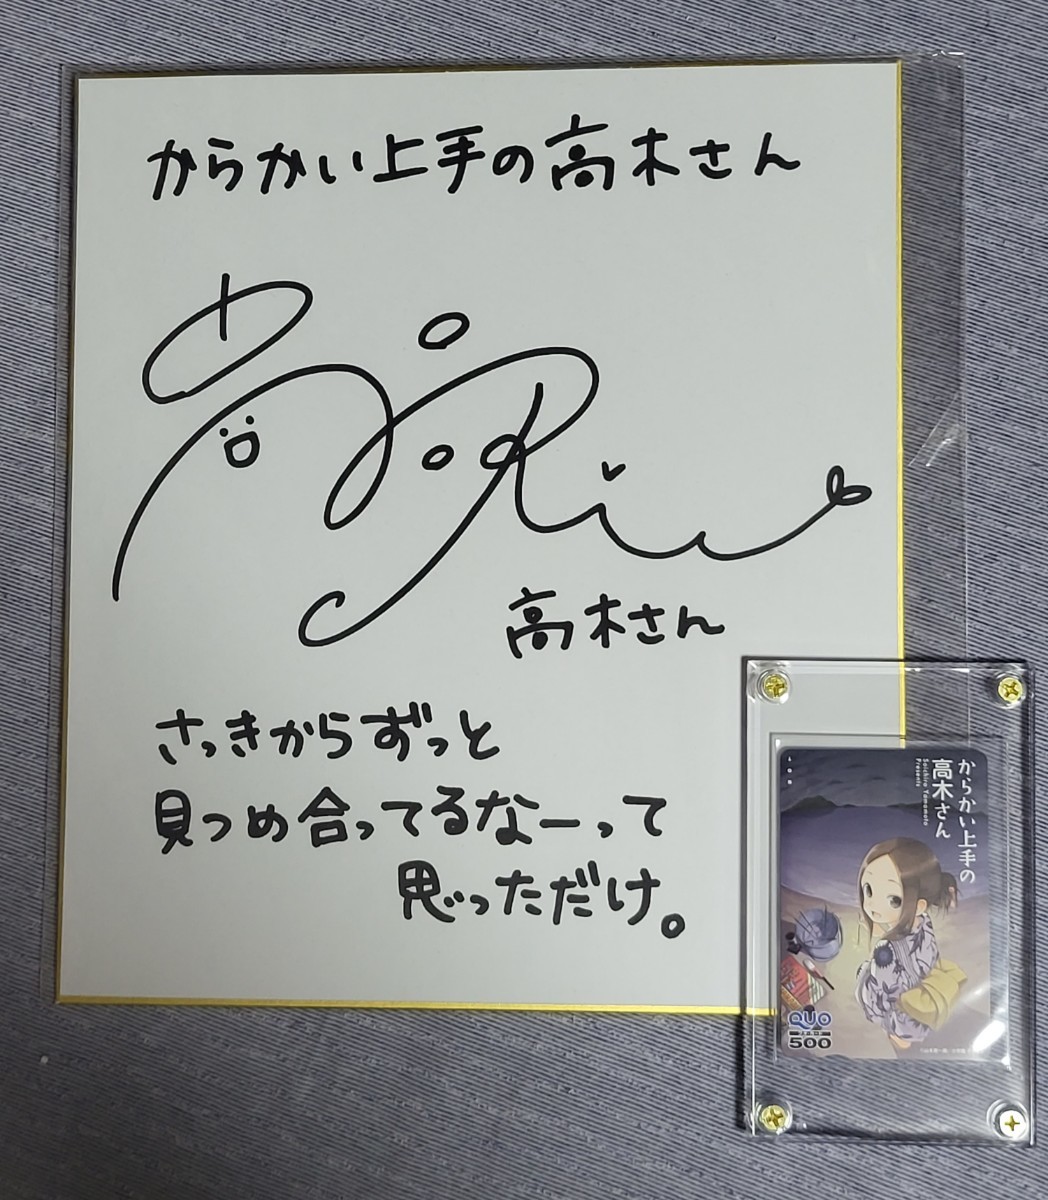 からかい上手の高木さん
高木さん
さっきからずっと
見つめ合ってるなーって
思っただけ。
からかい上手の
高木さん
Soichiro Yamamoto
Presents
QUO
クオ・カード
500